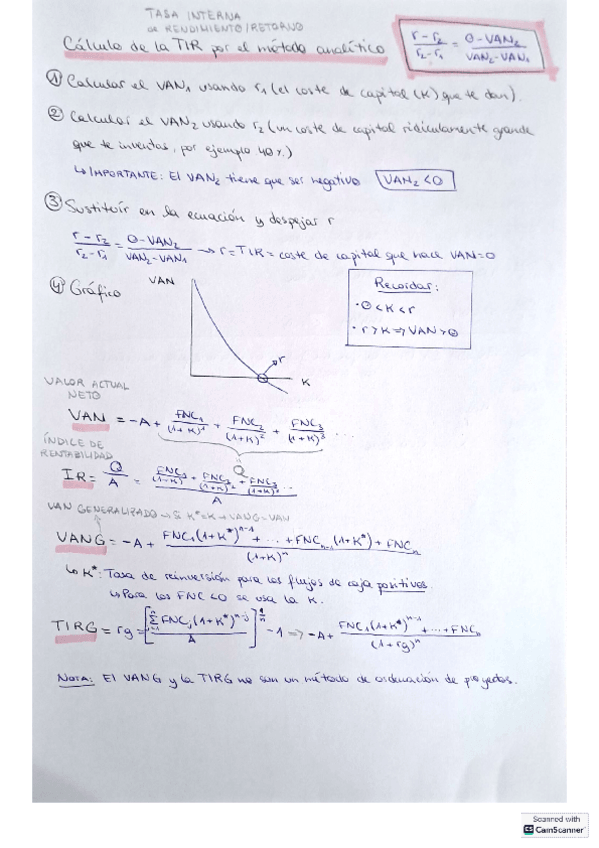 TASA INTERNA
DE RENDIMIENTO/RETORNO
Cálculo de la TIR por el método analítico
r-r₂/r₂-r₁ = 0-VAN₂/VAN₂-VAN₁
① Calcular el VAN₁ usando r₁ (el coste de capital (K) que te dan).
② Calcular el VAN₂ usando r₂ (un coste de capital ridículamente grande
que te inventas, por ejemplo 40%)
↳ IMPORTANTE: El VAN₂ tiene que ser negativo VAN₂<0
③ Sustituir en la ecuación y despejar r
r-r₂/r₂-r₁ = 0-VAN₂/VAN₂-VAN₁ → r=TIR= coste de capital que hace VAN=0
④ Gráfico
VAN
r
K
Recordar:
·0<K<r
·r>K⇒VAN>0
VALOR ACTUAL
NETO
VAN = -A + FNC₁/(1+K)¹ + FNC₂/(1+K)² + FNC₃/(1+K)³ ...
Q
ÍNDICE DE
RENTABILIDAD
IR = Q/A = FNC₁/(1+K)¹ + FNC₂/(1+K)² + FNC₃/(1+K)³ ... / A
VAN GENERALIZADO → Si K*=K → VANG=VAN
VANG = -A + FNC₁(1+K*)ⁿ⁻¹ + ... + FNCₙ₋₁(1+K*) + FNCₙ / (1+K)ⁿ
↳ K*: Tasa de reinversión para los flujos de caja positivos
↳ Para los FNC<0 se usa la K.
TIRG = rg = [Σ FNCⱼ(1+K*)ⁿ⁻ʲ / A]^1/n - 1 ⇒ -A + FNC₁(1+K*)ⁿ⁻¹ + ... + FNCₙ / (1+rg)ⁿ
NOTA: El VANG y la TIRG no son un método de ordenación de proyectos.
Scanned with
CS CamScanner